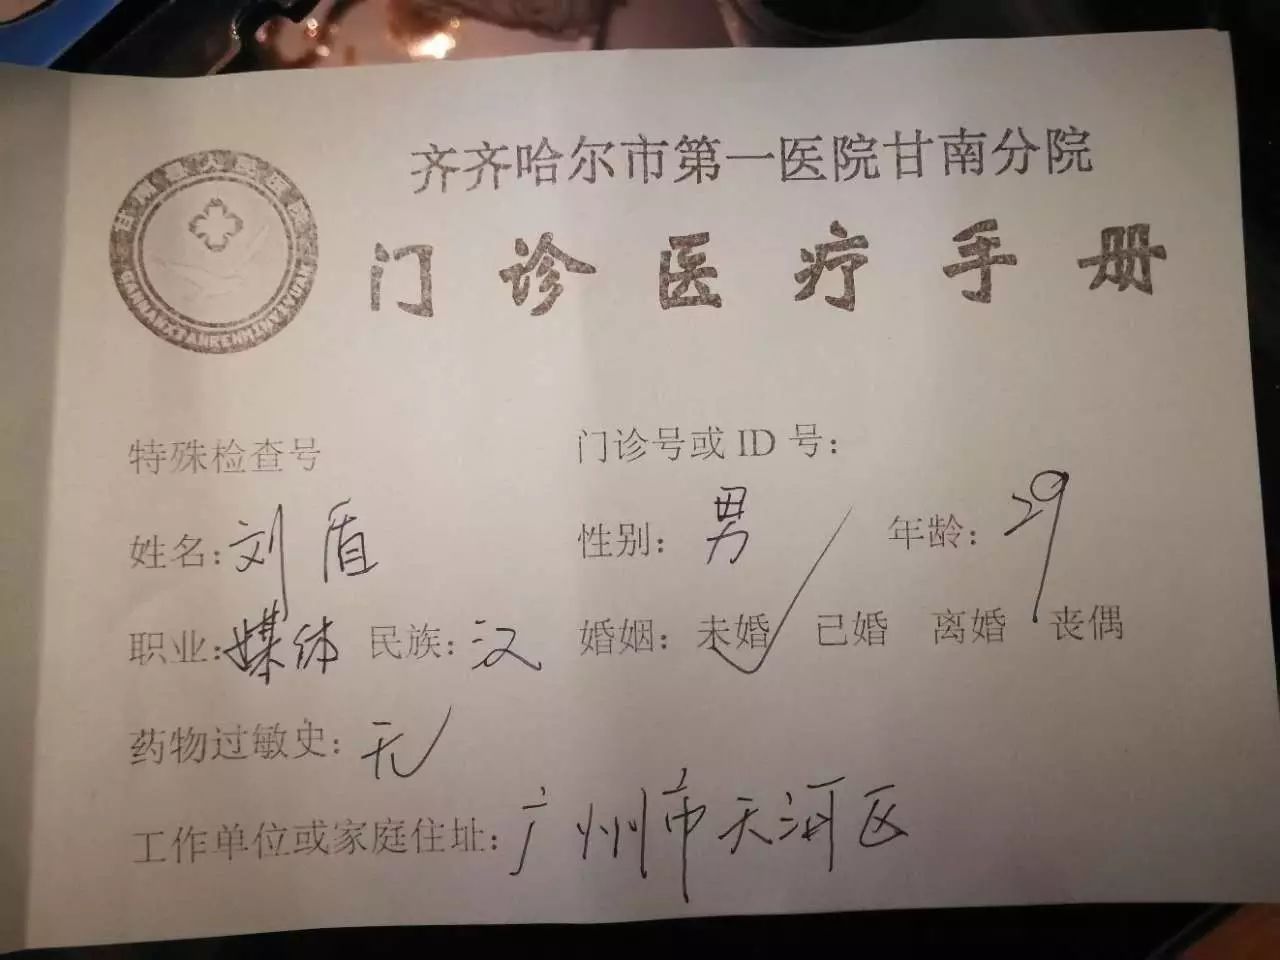 齐齐哈尔市第一医院甘南分院
门诊医疗手册
甘南县人民医院
GANNANXIANRENMINYIYUAN
特殊检查号 门诊号或 ID 号：
姓名：刘盾 性别：男 年龄：29
职业：媒体 民族：汉 婚姻：未婚 已婚 离婚 丧偶
药物过敏史：无
工作单位或家庭住址：广州市天河区